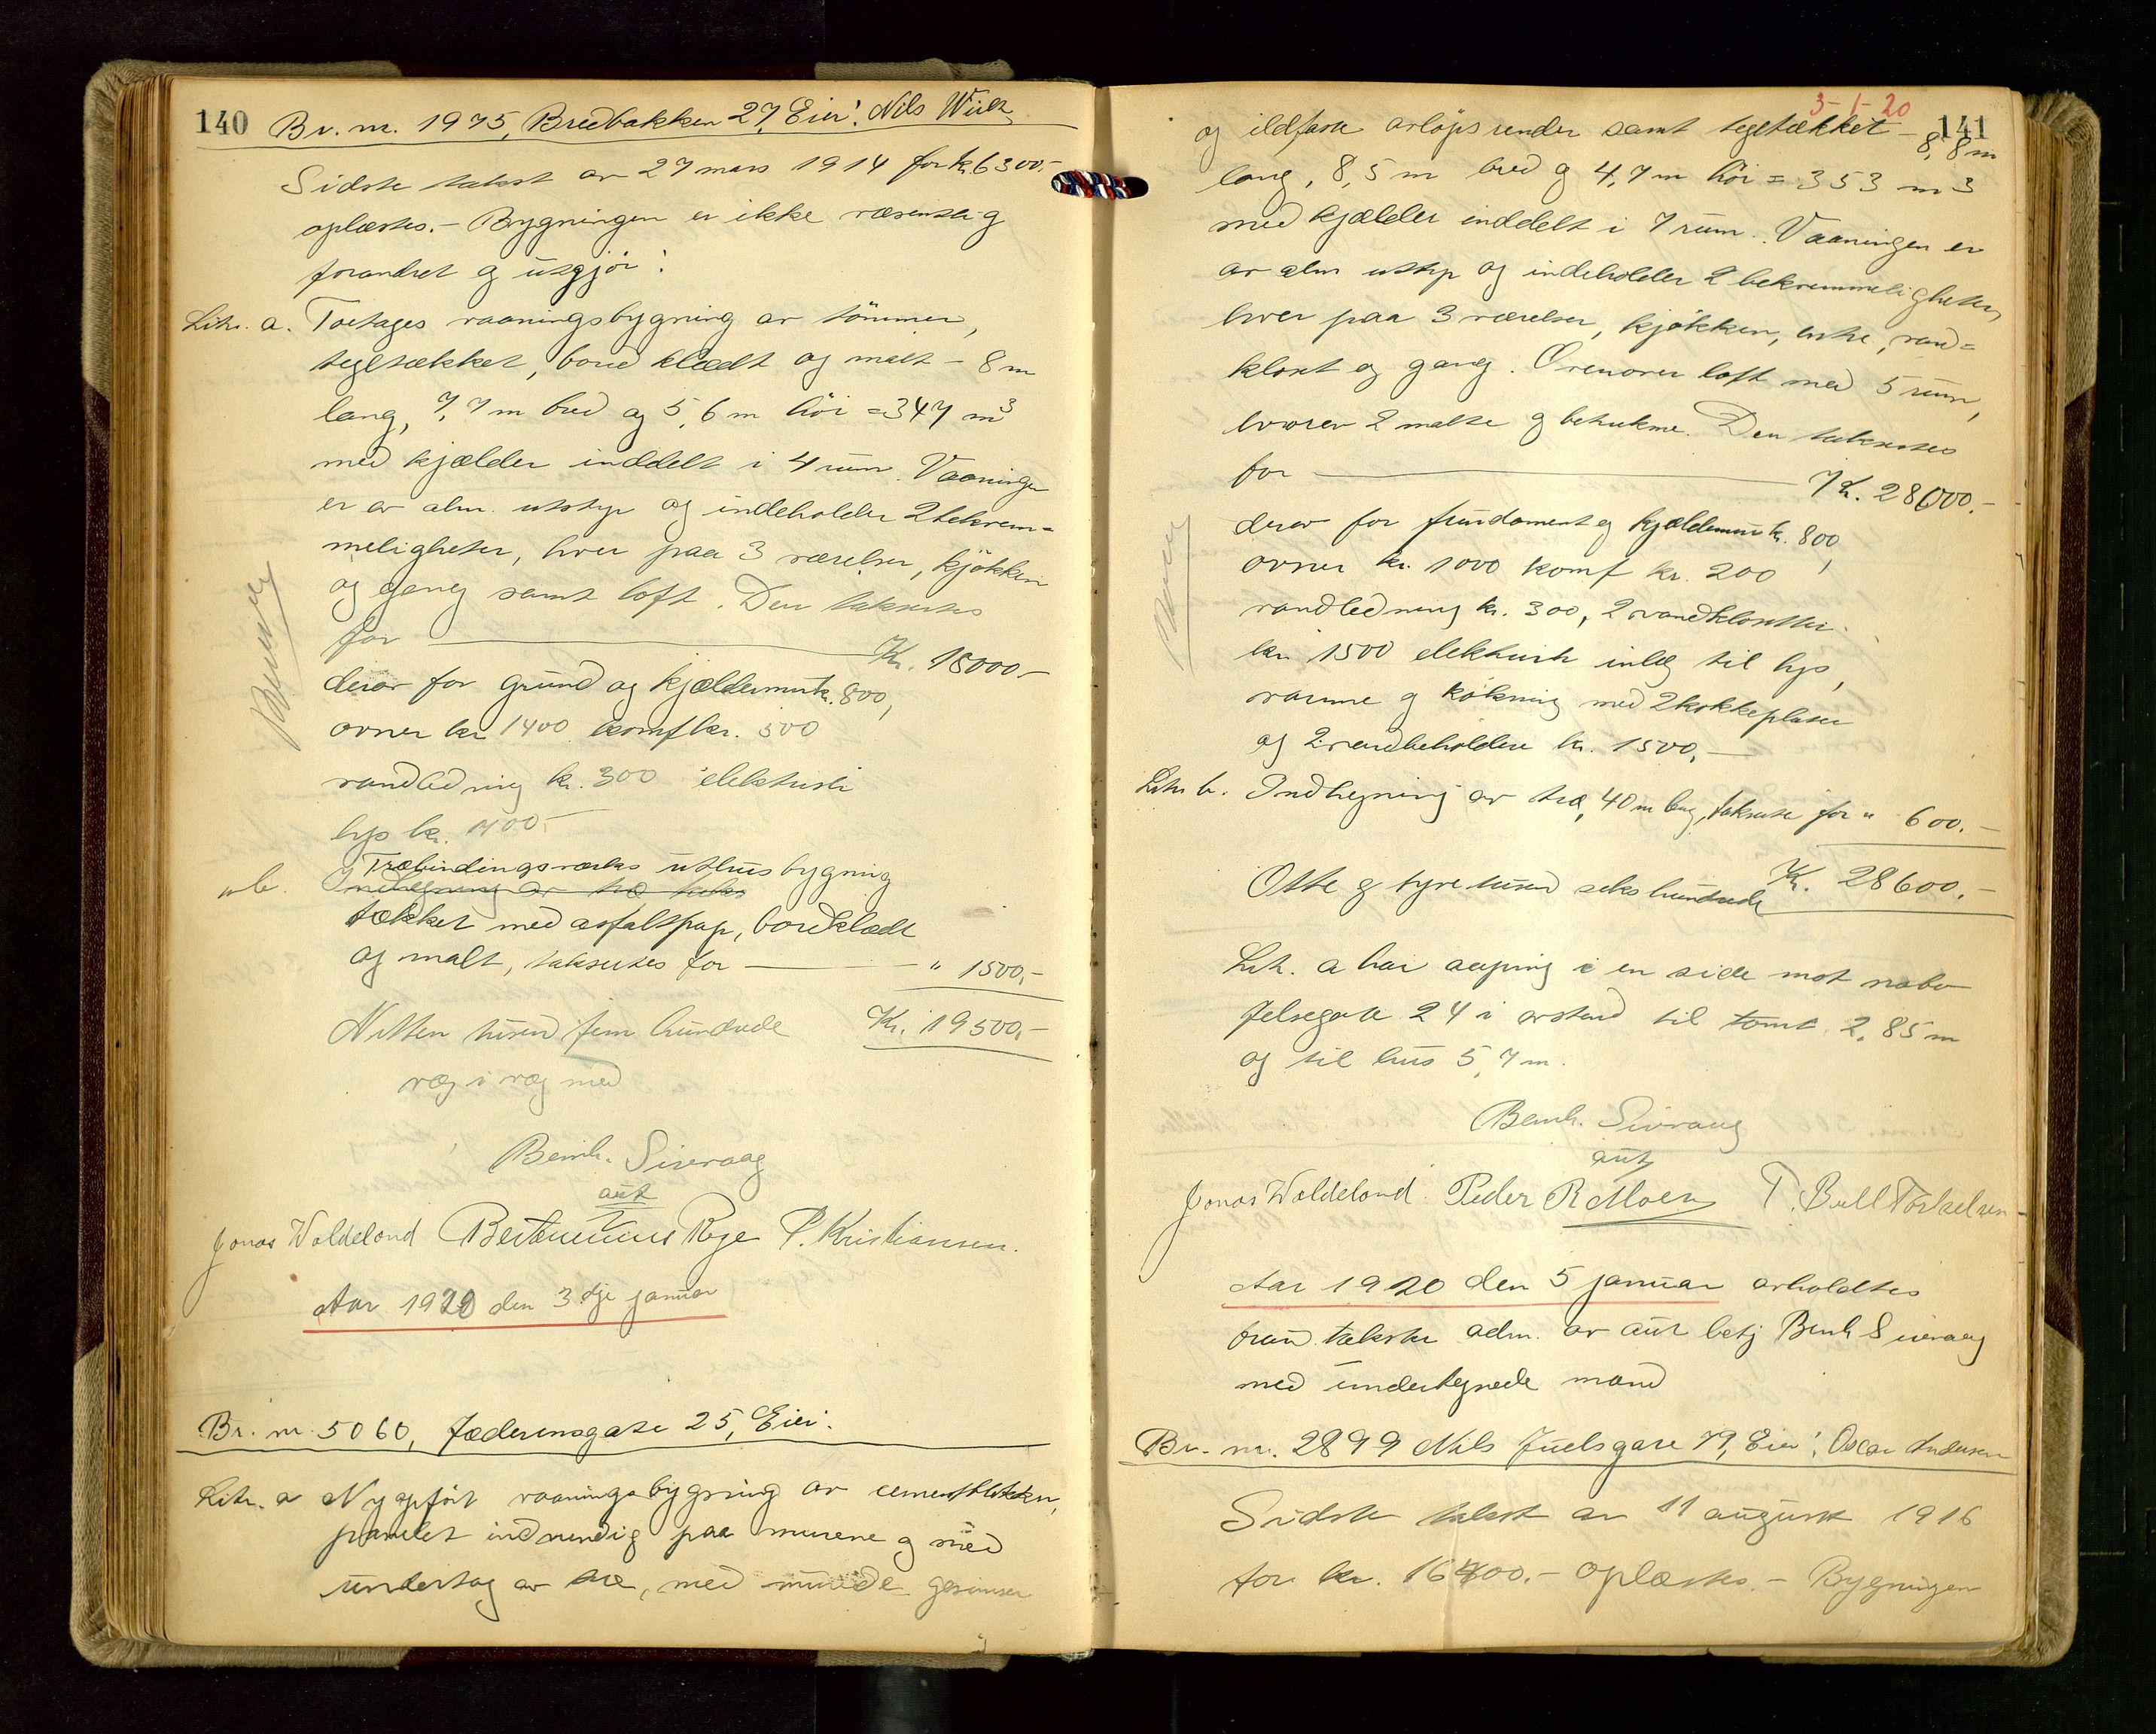 140
Br. nr. 1975, Bredbakken 27, Eier: Nils
Sidste takst av 27 mars 1914 for kr. 6300.-
oplæstes. - Bygningen er ikke væsentlig
forandret og utgjör:
Litr. a. Toetages vaaningsbygning av tömmer,
tegltækket, bordklædt og malt - 8 m
lang, 7,7 m bred og 5,6 m höi = 347 m3
med kjælder inddelt i 4 rum. Vaaningen
er av alm. utstyr og indeholder 2 bekvem=
meligheter, hver paa 3 værelser, kjökken
og gang samt loft. Den takseres
for Kr. 18000.-
derav for grund og kjældermur k. 800,
ovner kr 1400 komf kr. 500
vandledning kr. 300 elektrisk
lys kr. 1400.-
" b. Træbindingsverks uthusbygning
Indhegning av træ takse
tækket med asfaltpap, bordklædt
og malt, takseres for " 1500,-
Nitten tusen fem hundrede Kr. 19500,-
væg i væg med
Bernh. Sivevaag
aut
Jonas Waldeland Bertinius Rege P. Kristiansen.
Aar 1920 den 3.dje januar
Br. nr. 5060, Jæderensgate 25, Eier:
Litr. a Nyopfört vaaningsbygning av cementblokker,
panelet indvendig paa murene og med
undertag av træ, med murede gesimser
3-1-20
141
og ildfaste avlöpsrender samt tegltækket - 8,8 m
lang, 8,5 m bred og 4,7 m höi = 353 m3
med kjælder inddelt i 7 rum. Vaaningen er
av alm utstyr og indeholder 2 bekvemmeligheter,
hver paa 3 værelser, kjökken, entre, vand=
kloset og gang. Ovenover loft med 5 rum,
hvorav 2 malte og betrukne. Den takseres
for Kr. 28000.-
derav for fundament og kjældermur kr. 800,
ovner kr. 1000 komf kr. 200
vandledning kr. 300, 2 vandklosetter
kr. 1500 elektrisk inlæg til lys,
varme og kokning med 2 kokkeplater
og 2 vandbeholdere kr. 1500,-
Litr b. Indhegning av træ, 40 m lang, takseres for " 600.-
Otte og tyve tusen seks hundrede Kr. 28600.-
Litr. a har aapning i en side mot nabo
Jelsegate 24 i avstand til tomt 2,85 m
og til hus 5,7 m.
Bernh. Sivevaag
aut
Jonas Waldeland Peder R Moen T. Bull Torkelsen
Aar 1920 den 5 januar avholdtes
brandtakster adm. av aut betj Bernh Sivevaag
med undertegnede mænd
Br. nr. 2899 Nils Juelsgate 79, Eier: Oscar Andersen
Sidste takst av 11 august 1916
for kr. 16400.- oplæstes. - Bygningen